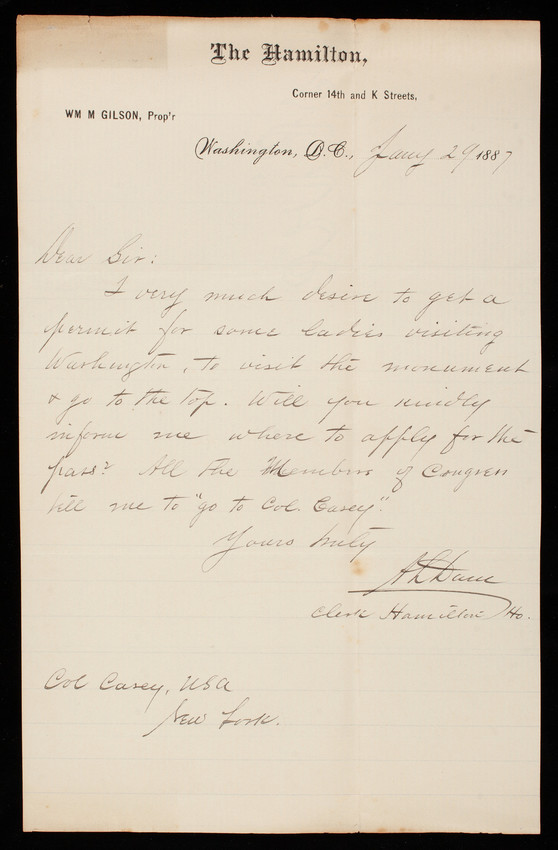 The Hamilton,
Corner 14th and K Streets,
WM M GILSON, Prop'r
Washington, D.C., Jany 29 1887
Dear Sir:
I very much desire to get a
permit for some ladies visiting
Washington, to visit the monument
& go to the top. Will you kindly
inform me where to apply for the
pass? All the Members of Congress
tell me to "go to Col. Casey".
Yours truly
Clerk Hamilton Ho.
Col Casey, USA
New York.